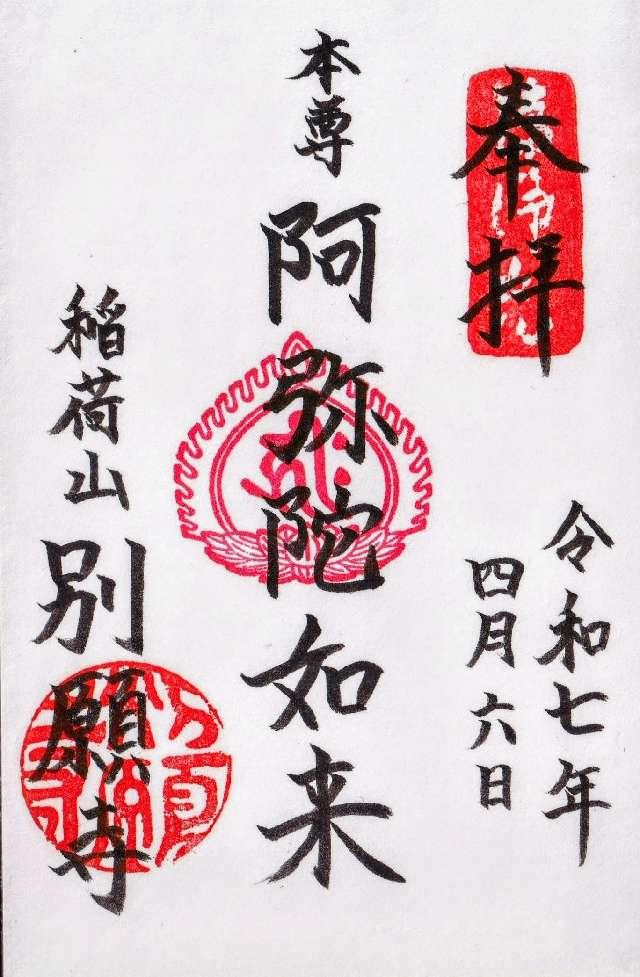 奉拝
令和七年
四月六日
本尊 阿弥陀如来
稲荷山 別願寺